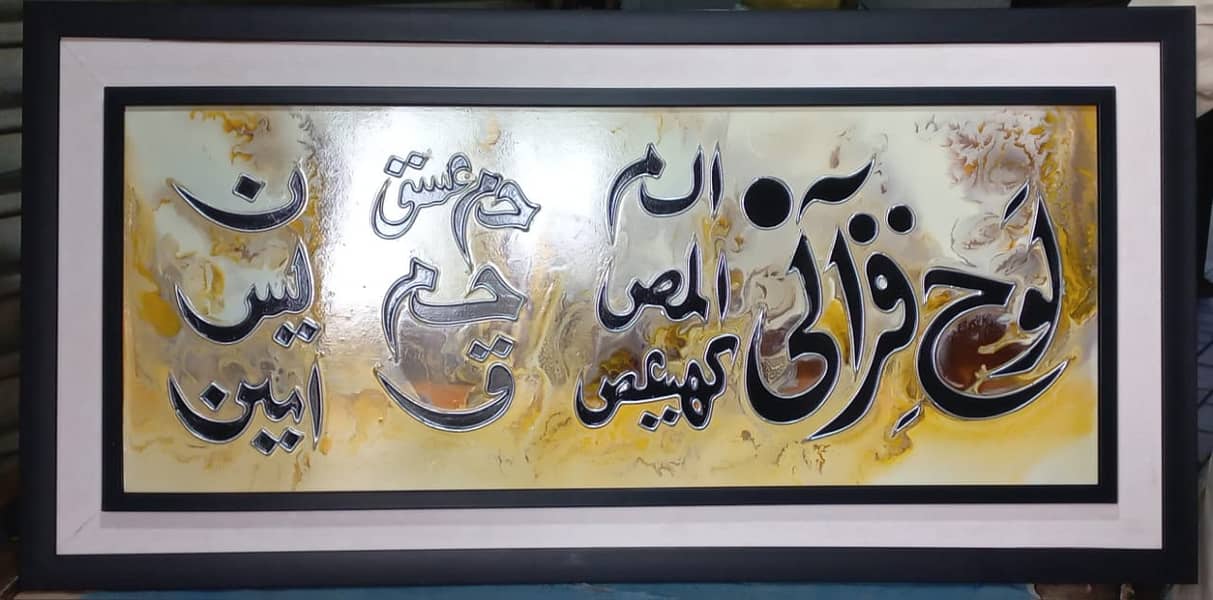 لَوح قِرآنی
الم
المص
کھیعص
حم عسق
حم
ق
ن
یس
امین